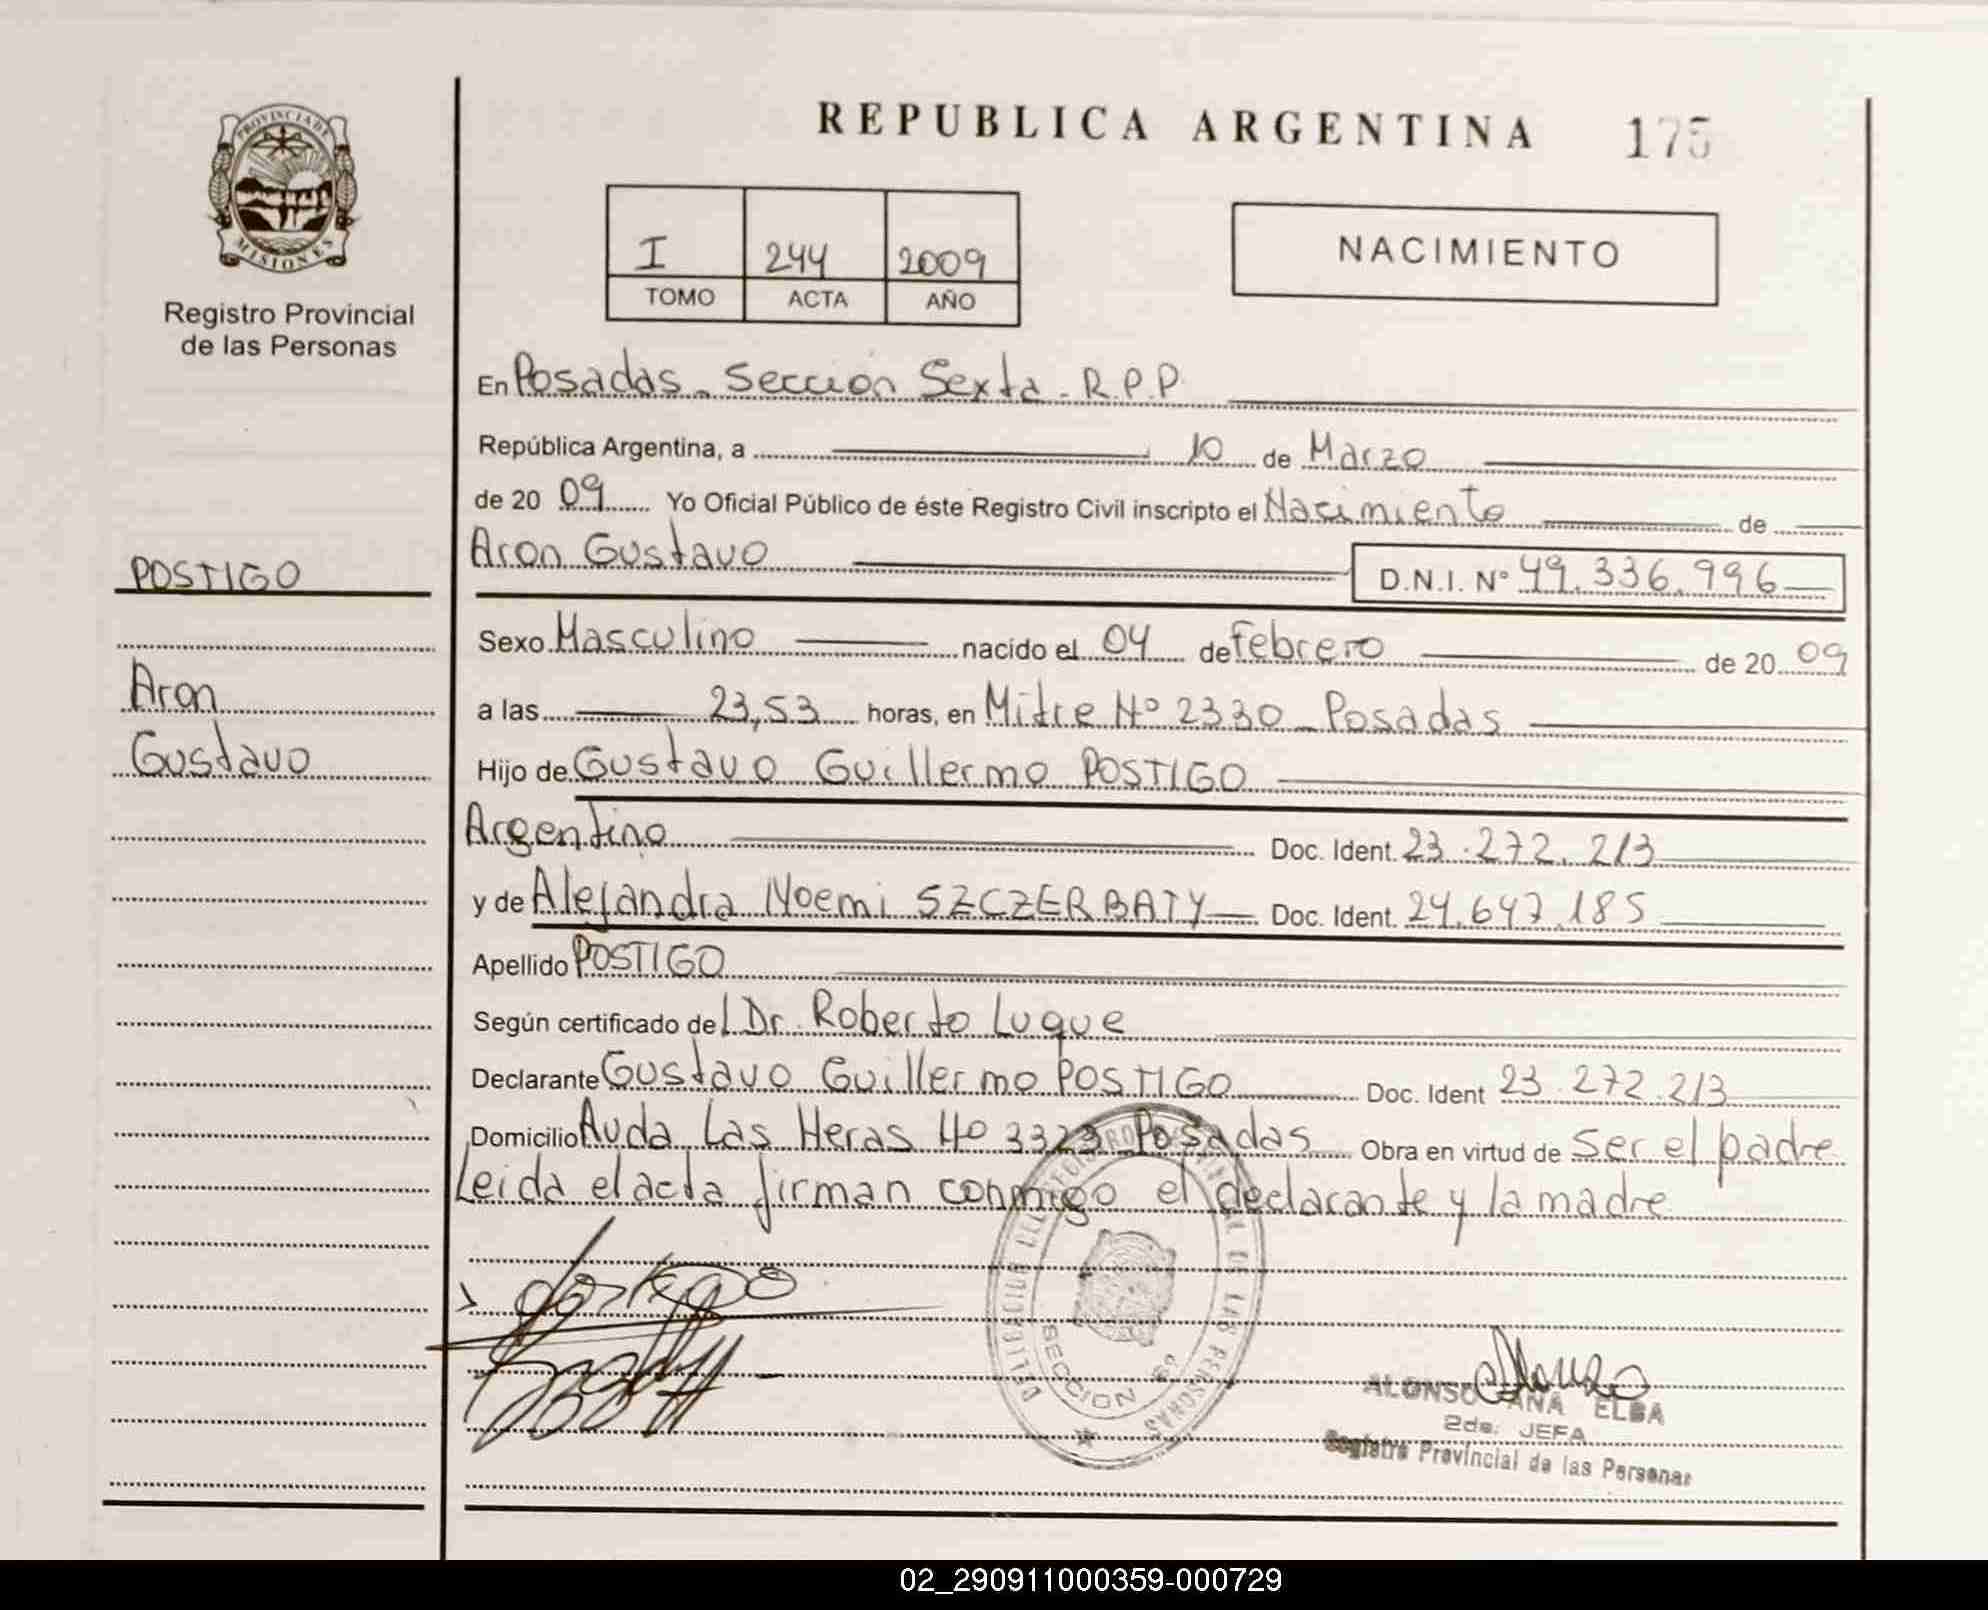 REPUBLICA ARGENTINA 175
PROVINCIA DE
MISIONES
Registro Provincial
de las Personas
I 244 2009
TOMO ACTA AÑO
NACIMIENTO
En Posadas - Sección Sexta - R.P.P
República Argentina, a 10 de Marzo
de 20 09 Yo Oficial Público de éste Registro Civil inscripto el Nacimiento de
Aron Gustavo D.N.I. Nº 49.336.996
POSTIGO
Aron
Gustavo
Sexo Masculino nacido el 04 de Febrero de 20 09
a las 23,53 horas, en Mitre Nº 2330 - Posadas
Hijo de Gustavo Guillermo POSTIGO
Argentino Doc. Ident. 23.272.213
y de Alejandra Noemi SZCZERBATY Doc. Ident. 24.647.185
Apellido POSTIGO
Según certificado del Dr. Roberto Luque
Declarante Gustavo Guillermo POSTIGO Doc. Ident 23.272.213
Domicilio Avda Las Heras Nº 3323 Posadas Obra en virtud de ser el padre
Leida el acta firman conmigo el declarante y la madre
DELEGACION DEL REGISTRO PROVINCIAL DE LAS PERSONAS
SECCION 6ª
ALONSO ANA ELBA
2da. JEFA
Registro Provincial de las Personas
02_290911000359-000729